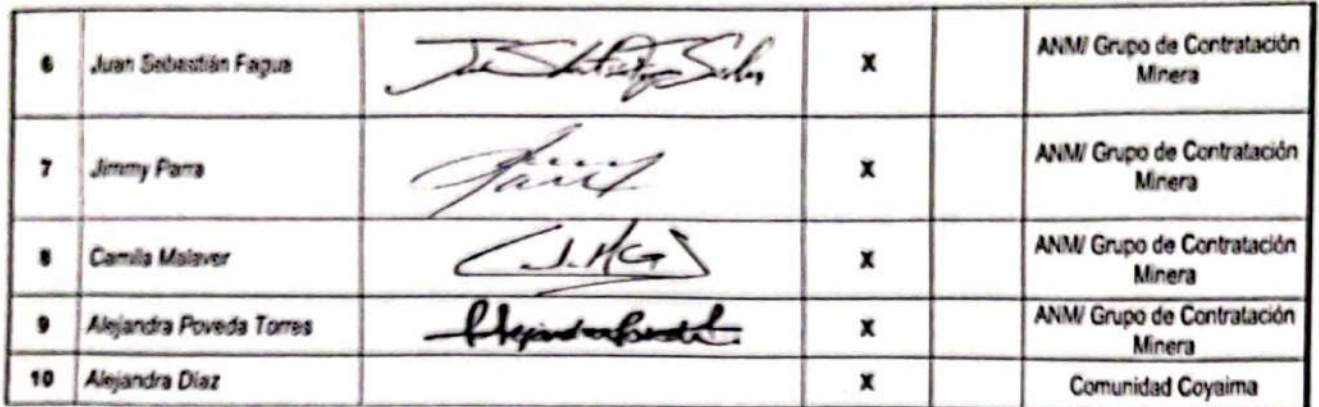 6 Juan Sebastián Fagua X ANM/ Grupo de Contratación
Minera
7 Jimmy Parra X ANM/ Grupo de Contratación
Minera
8 Camila Malaver X ANM/ Grupo de Contratación
Minera
9 Alejandra Poveda Torres X ANM/ Grupo de Contratación
Minera
10 Alejandra Díaz X Comunidad Coyaima